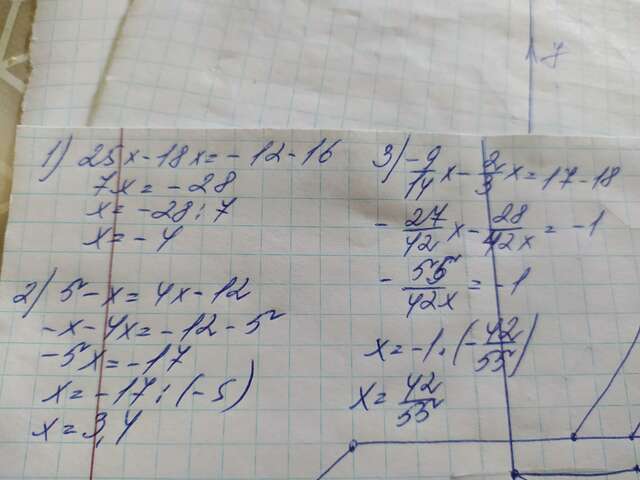 7
1) 25x-18x=-12-16
7x=-28
x=-28:7
x=-4
2) 5-x=4x-12
-x-4x=-12-5
-5x=-17
x=-17:(-5)
x=3,4
3) -9/14 x - 2/3 x = 17-18
-27/42 x - 28/42x = -1
-55/42x = -1
x=-1·(-42/55)
x=42/55